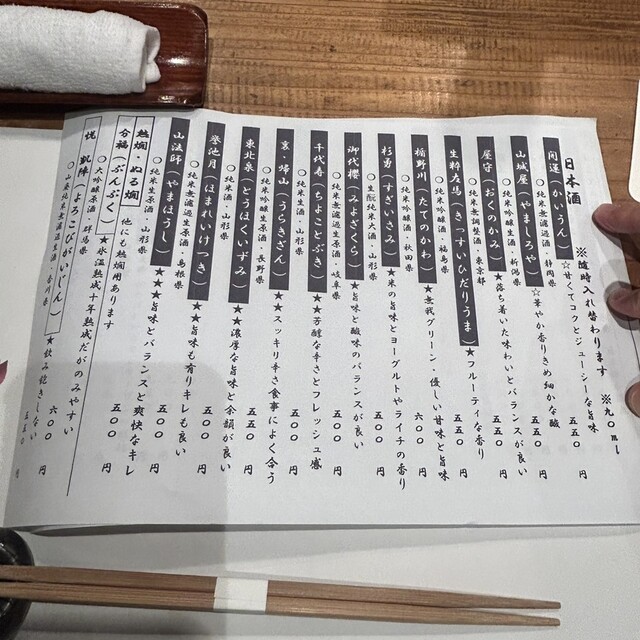 日本酒　※随時入れ替わります　※九〇ml
開運（かいうん）☆甘くてコクとジューシーな旨味
○純米無濾過生原酒・静岡県　五五〇円
山城屋（やましろや）☆華やか香りきめ細かな酸
○純米吟醸生原酒・新潟県　五五〇円
屋守（おくのかみ）★落ち着いた味わいとバランスが良い
○純米無調整生酒・東京都　五五〇円
生粋左馬（きっすいひだりうま）★フルーティな香り
○純米吟醸原酒・福島県　五五〇円
楯野川（たてのかわ）★無我グリーン・優しい甘味と旨味
○純米吟醸酒・秋田県　五〇〇円
杉勇（すぎいさみ）★米の旨味とヨーグルトやライチの香り
○生酛純米大酒・山形県　六〇〇円
御代櫻（みよざくら）★旨味と酸味のバランスが良い
○純米無濾過生原酒・岐阜県　五〇〇円
千代寿（ちよことぶき）★★芳醇な辛さとフレッシュ感
○純米生原酒・山形県　五〇〇円
裏・帰山（うらきざん）★スッキリ辛さ食事によく合う
○純米吟醸原酒・長野県　五〇〇円
東北泉（とうほくいずみ）★★濃厚な旨味と余韻が良い
○純米酒・山形県　五〇〇円
誉池月（ほまれいけつき）★★旨味も有りキレも良い
○純米無濾過生原酒・島根県　五〇〇円
山法師（やまほうし）★★★旨味とバランスと爽快なキレ
○純米生原酒・山形県　五〇〇円
熱燗・ぬる燗　他にも熱燗用あります
分福（ぶんぶく）★氷温熟成十年熟成だがのみやすい
○大吟醸原酒・群馬県　六〇〇円
悦　凱陣（よろこびがいじん）★飲み飽きしない
○山廃純米無濾過生原酒・香川県　五五〇円